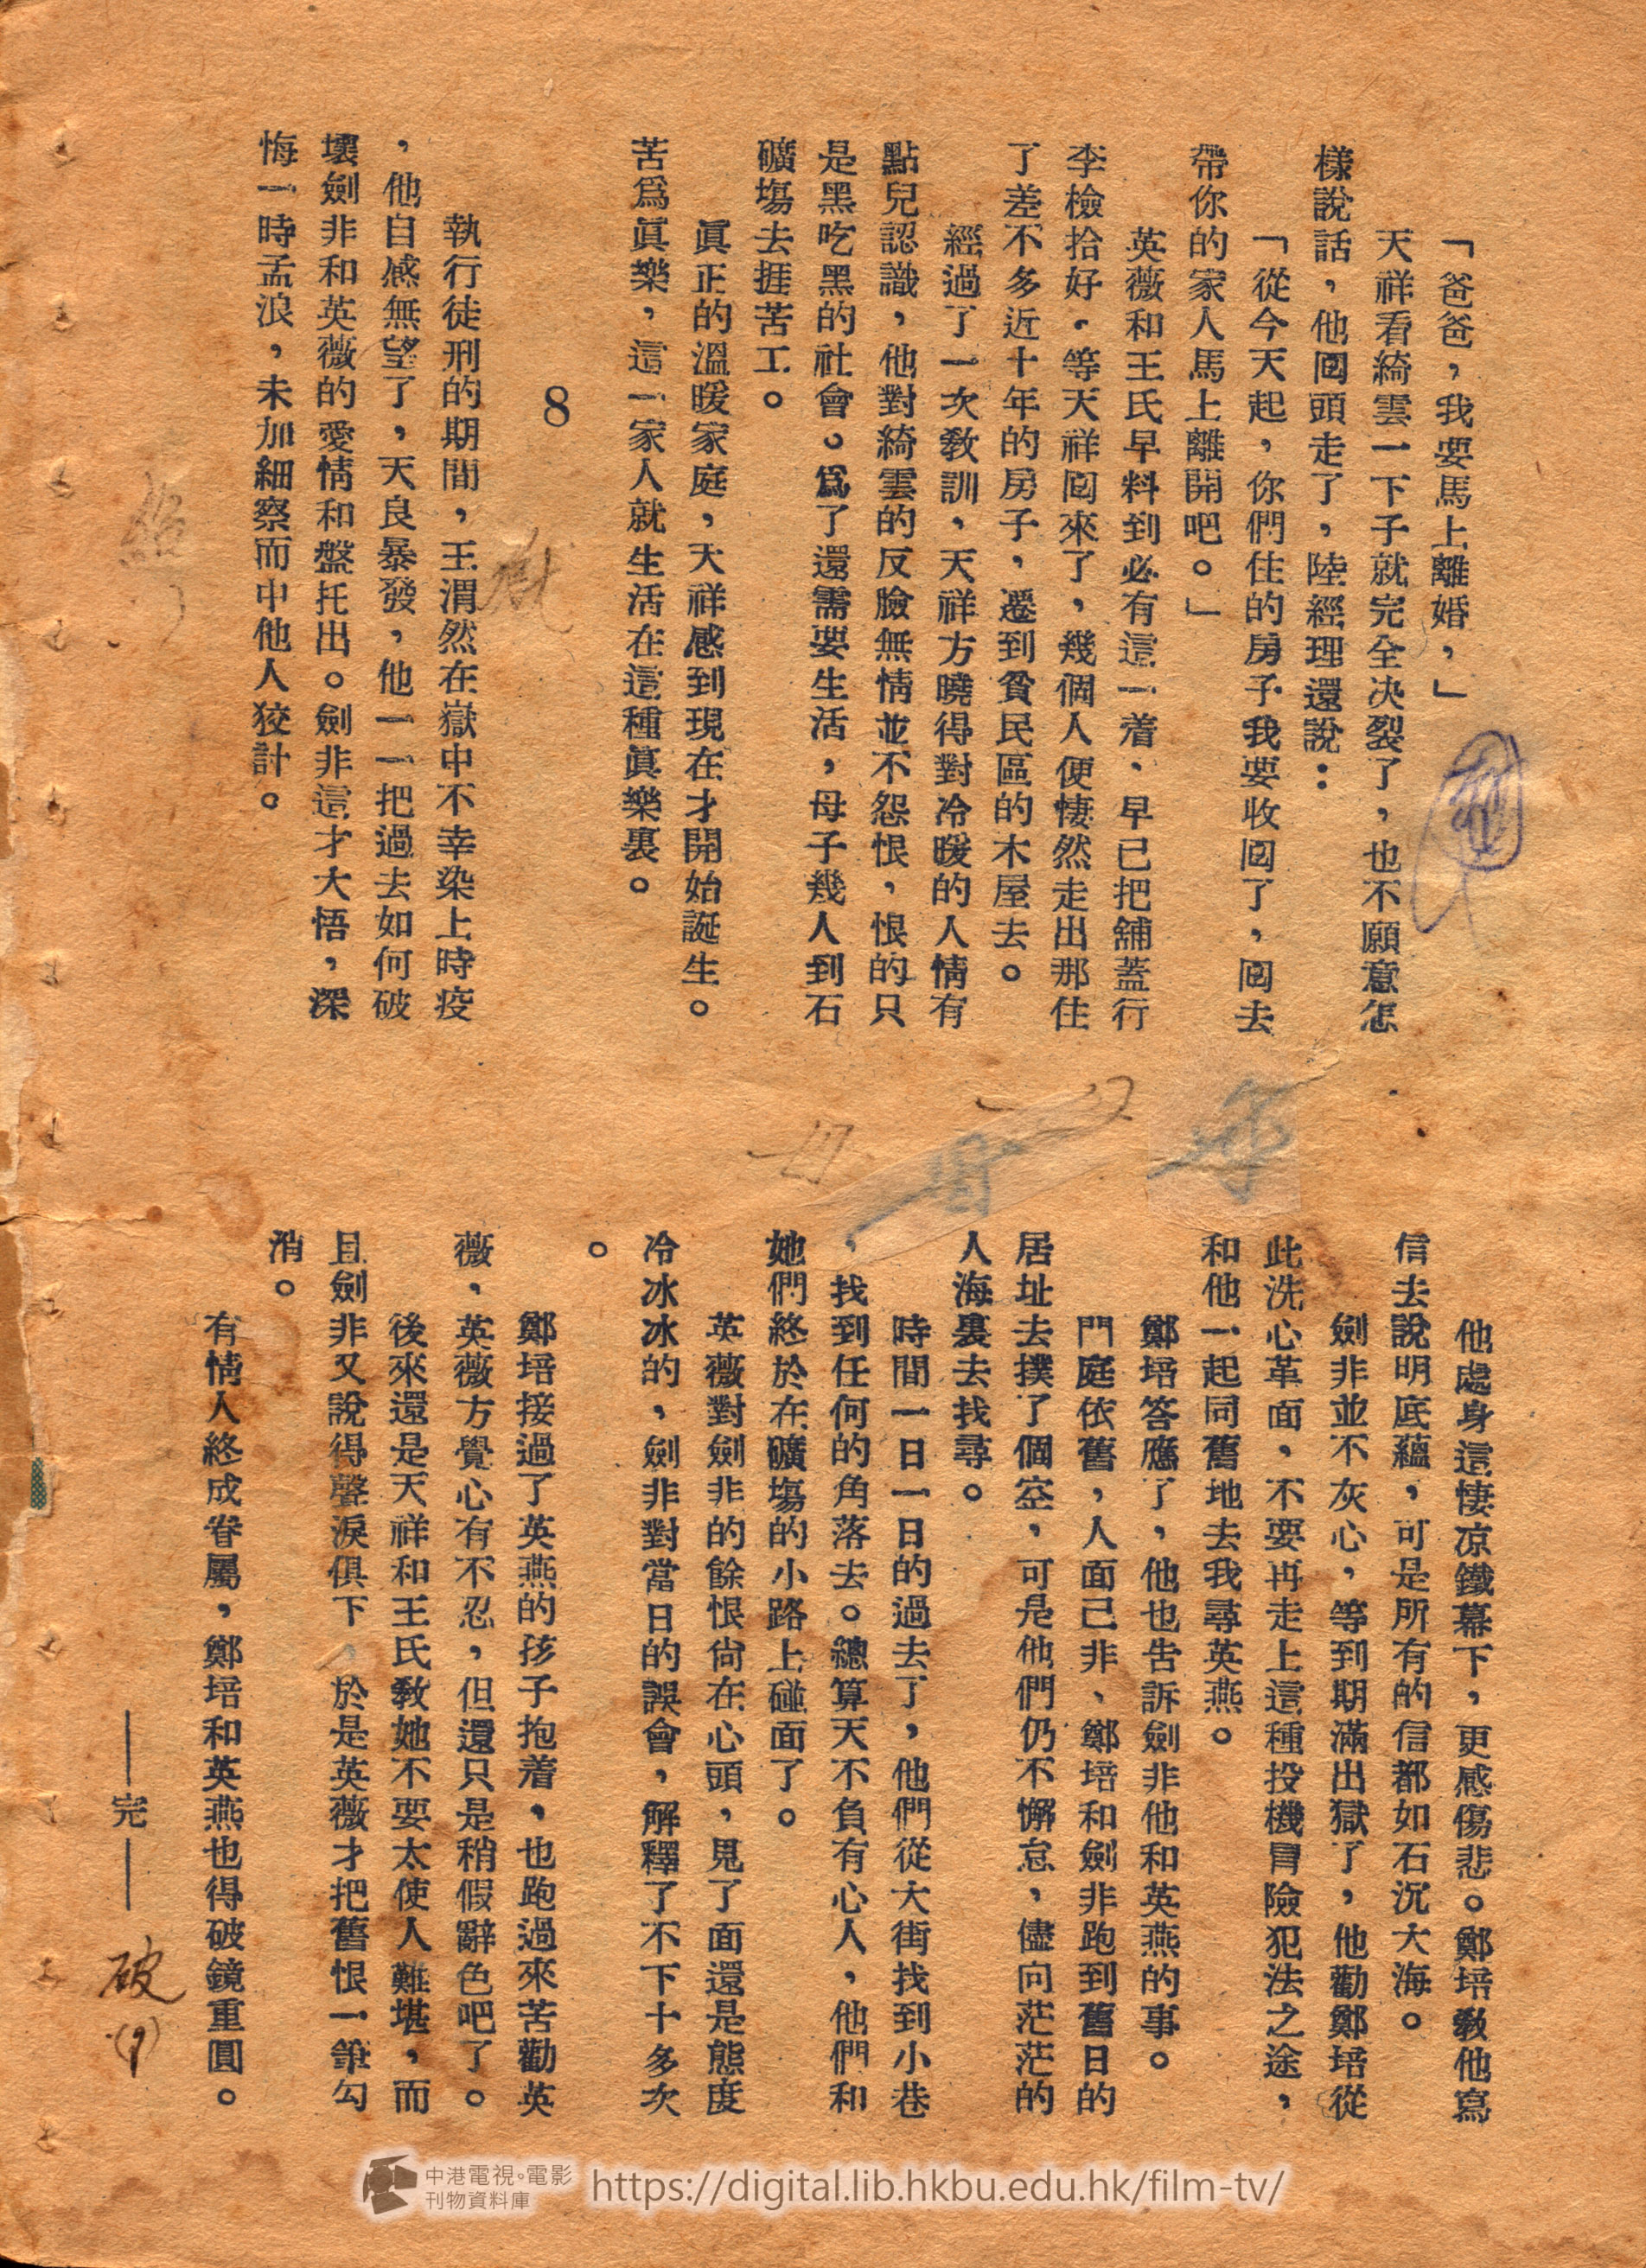 「爸爸，我要馬上離婚，」
天祥看綺雲一下子就完全决裂了，也不願意怎
樣說話，他囘頭走了，陸經理還說：
「從今天起，你們住的房子我要收囘了，囘去
帶你的家人馬上離開吧。」
英薇和王氏早料到必有這一着、早已把舖蓋行
李檢拾好。等天祥囘來了，幾個人便悽然走出那住
了差不多近十年的房子，遷到貧民區的木屋去。
經過了一次敎訓，天祥方曉得對冷暖的人情有
點兒認識，他對綺雲的反臉無情並不怨恨，恨的只
是黑吃黑的社會。爲了還需要生活，母子幾人到石
礦塲去捱苦工。
眞正的溫暖家庭，天祥感到現在才開始誕生。
苦爲眞樂，這一家人就生活在這種眞樂裏。
8
執行徒刑的期間，王渭然在嶽中不幸染上時疫
，他自感無望了，天良暴發，他一一把過去如何破
壞劍非和英薇的愛情和盤托出。劍非這才大悟，深
悔一時孟浪，未加細察而中他人狡計。
他處身這悽凉鐵幕下，更感傷悲。鄭培敎他寫
信去說明底蘊，可是所有的信都如石沉大海。
劍非並不灰心，等到期滿出獄了，他勸鄭培從
此洗心革面，不要再走上這種投機冒險犯法之途，
和他一起同舊地去我尋英燕。
鄭培答應了，他也告訴劍非他和英燕的事。
門庭依舊，人面己非、鄭培和劍非跑到舊日的
居址去撲了個空，可是他們仍不懈怠，儘向茫茫的
人海裏去找尋。
時間一日一日的過去了，他們從大街找到小巷
，找到任何的角落去。總算天不負有心人，他們和
她們終於在礦塲的小路上碰面了。
英薇對劍非的餘恨尙在心頭，見了面還是態度
冷冰冰的，劍非對當日的誤會，解釋了不下十多次
。
鄭培接過了英燕的孩子抱着，也跑過來苦勸英
薇，英薇方覺心有不忍，但還只是稍假辭色吧了。
後來還是天祥和王氏敎她不要太使人難堪，而
且劍非又說得聲淚俱下，於是英薇才把舊恨一筆勾
消。
有情人終成眷屬，鄭培和英燕也得破鏡重圓。
——完——
破(9)
中港電視。電影
刊物資料庫
https://digital.lib.hkbu.edu.hk/film-tv/